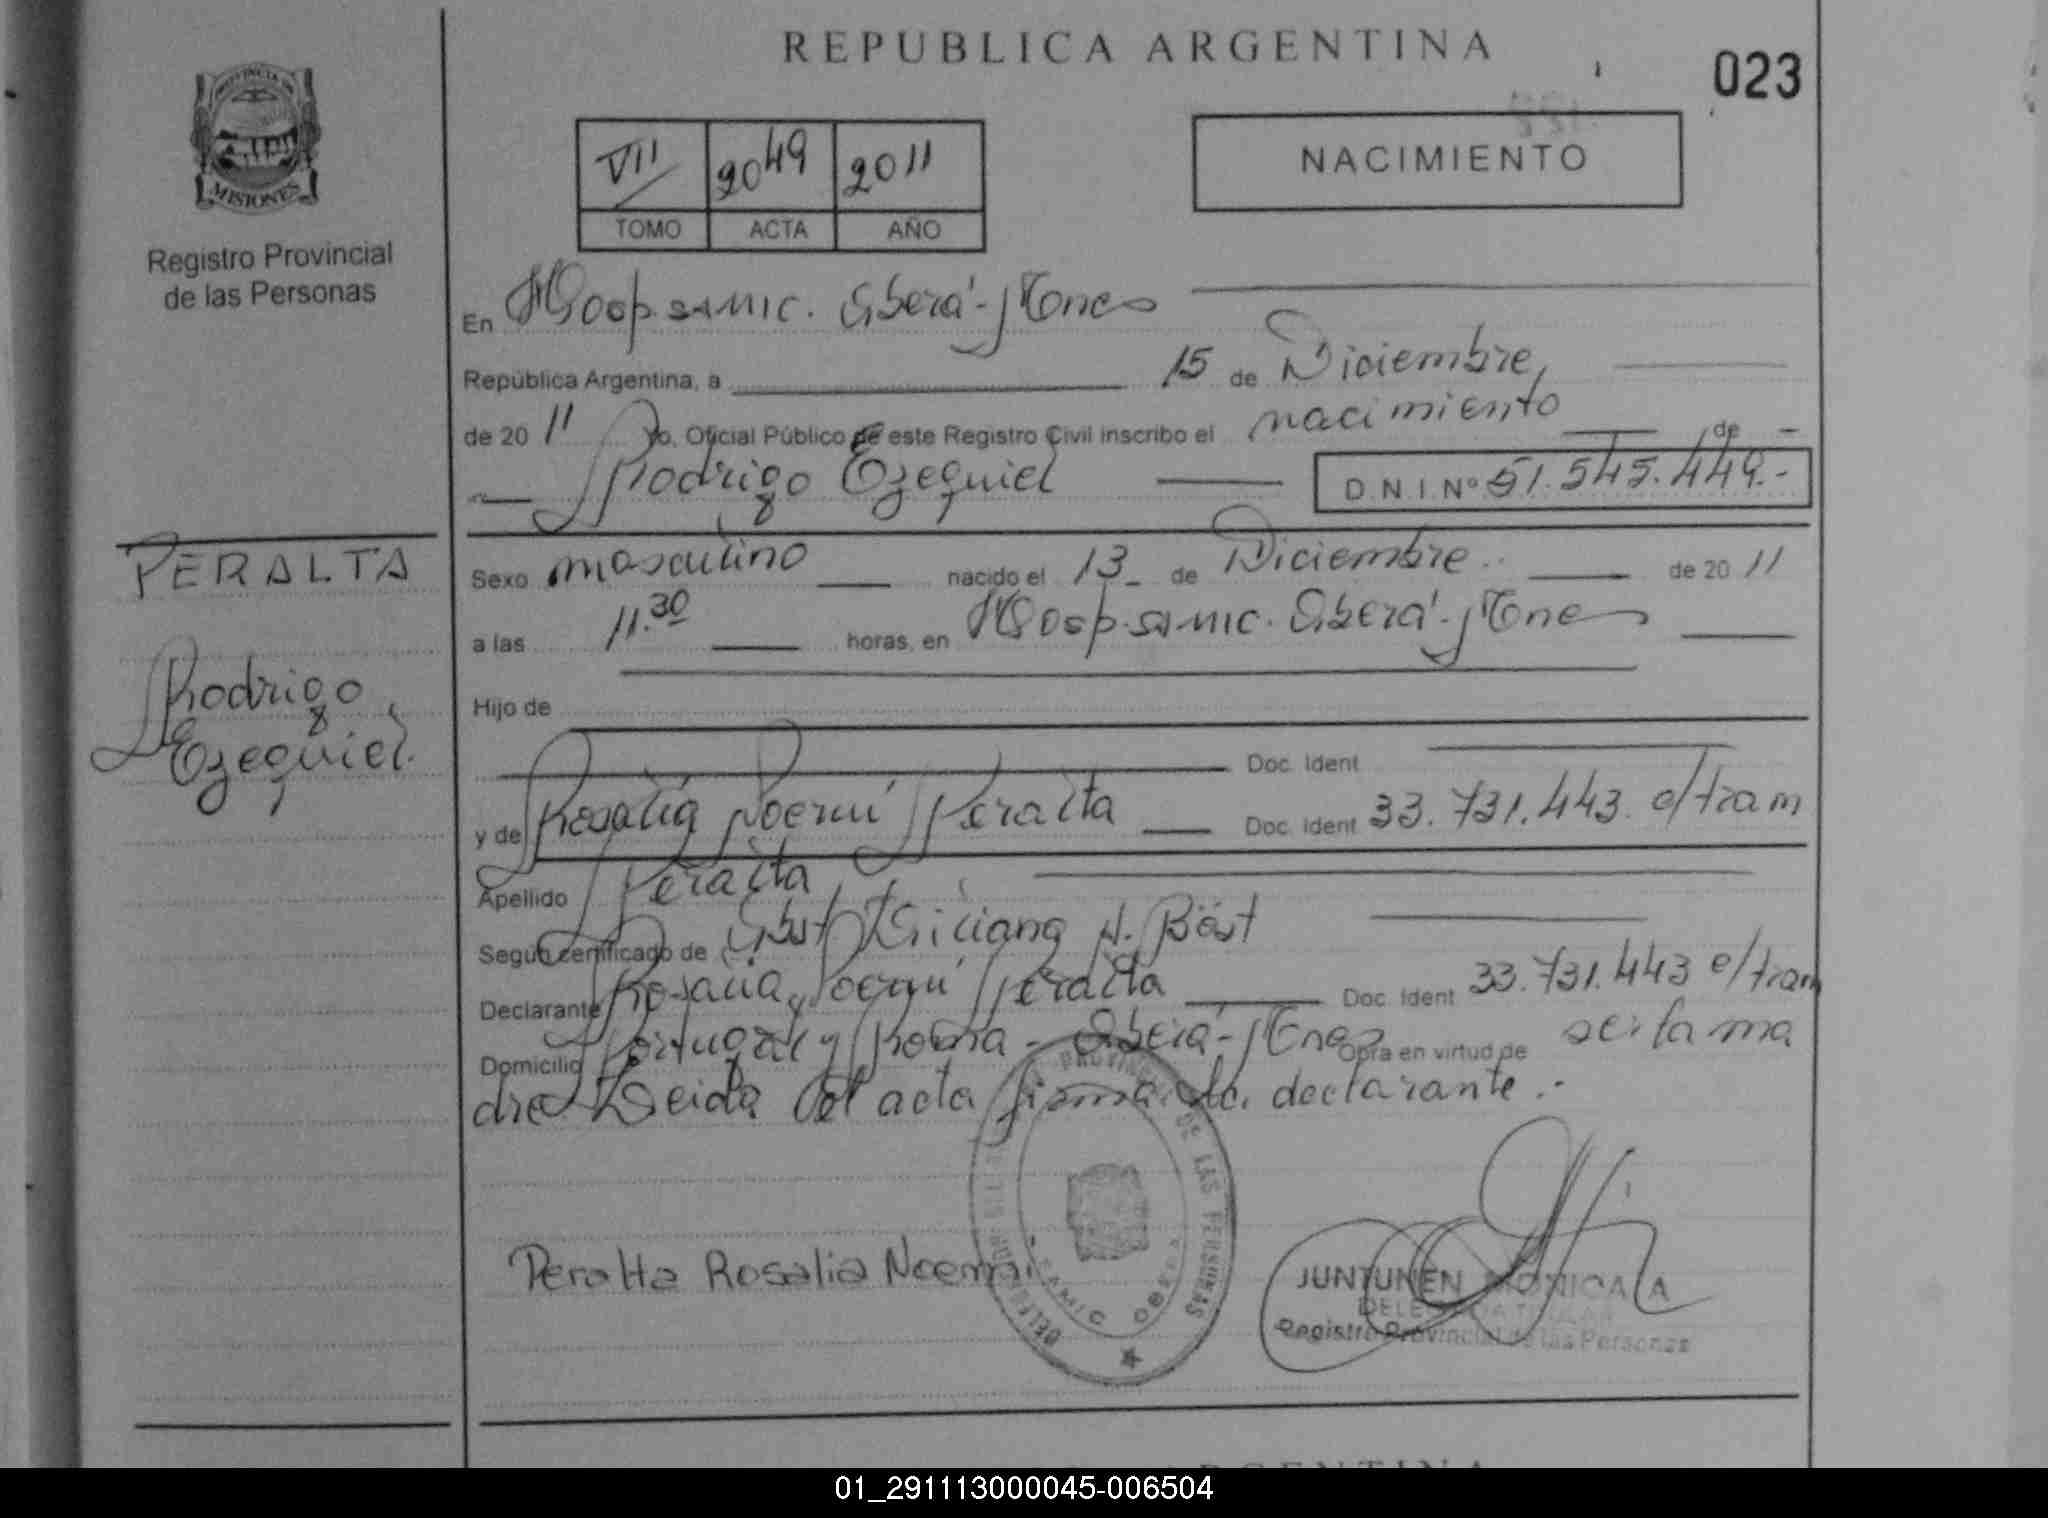 REPUBLICA ARGENTINA
023
PROVINCIA DE
MISIONES
Registro Provincial
de las Personas
VII 2049 2011
TOMO ACTA AÑO
NACIMIENTO
En Oberá - Mnes
República Argentina, a 15 de Diciembre
de 20 11 Yo, Oficial Público de este Registro Civil inscribo el nacimiento de
Rodrigo Ezequiel D.N.I.Nº 51.545.449.-
PERALTA
Rodrigo
Ezequiel.
Sexo masculino nacido el 13 de Diciembre de 20 11
a las 11.30 horas, en Oberá - Mnes
Hijo de
Doc. Ident
y de Rosalia Noemí Peralta Doc. Ident 33.731.443. e/tram
Apellido Peralta
Según certificado de Obst. A. Bäst
Declarante Rosalia Noemí Peralta Doc. Ident 33.731.443 e/tram
Domicilio Portugal y Roma - Oberá - Mnes Obra en virtud de ser la ma
dre Leida el acta firma la declarante.-
Peralta Rosalia Noemi
JUNTUNEN MONICA A
DELEGADA TITULAR
Registro Provincial de las Personas
01_291113000045-006504